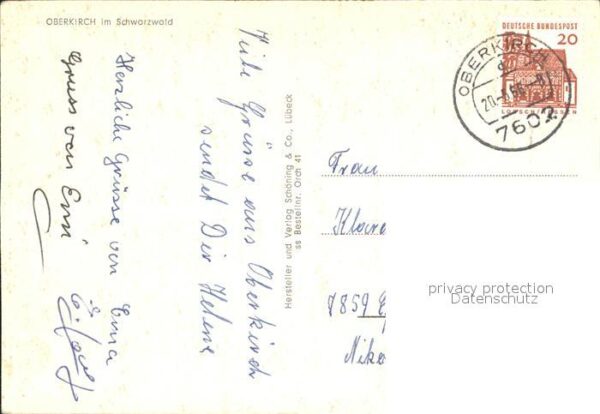 OBERKIRCH im Schwarzwald
Viele Grüsse aus Oberkirch
sendet Dir Helene
Herzliche Grüsse von Erna
Gruss von Emi
Hersteller und Verlag Schöning & Co., Lübeck
ss Bestellnr. Orch 41
DEUTSCHE BUNDESPOST
20
OBERKIRCH
7602
Frau
Klara
7859
Niko
privacy protection
Datenschutz